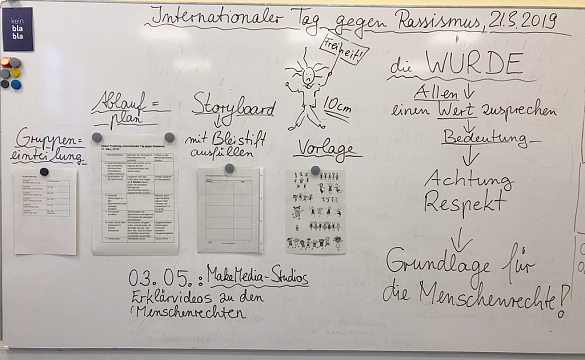 kein
bla
bla
Internationaler Tag gegen Rassismus, 21.3.2019
Freiheit!
10cm
Gruppen=
einteilung
Ablauf=
plan
Storyboard
mit Bleistift
ausfüllen
Vorlage
die WÜRDE
Allen
einen Wert zusprechen
Bedeutung
Achtung
Respekt
Grundlage für
die Menschenrechte!
03. 05.: MakeMedia-Studios
Erklärvideos zu den
Menschenrechten